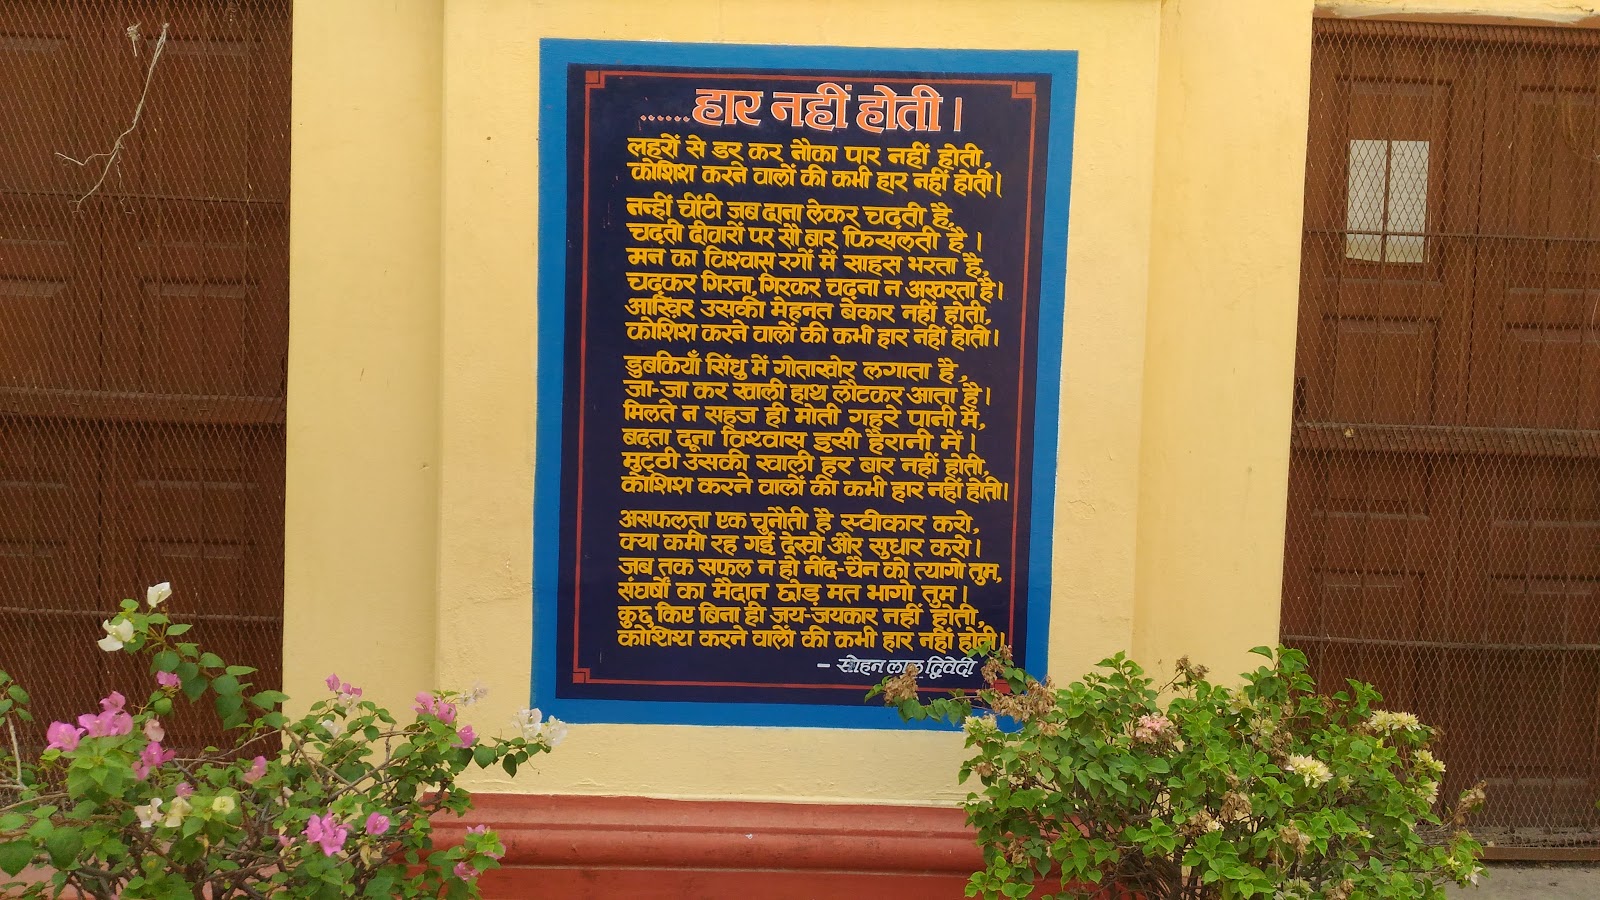 ......हार नहीं होती।
लहरों से डर कर नौका पार नहीं होती,
कोशिश करने वालों की कभी हार नहीं होती।
नन्हीं चींटी जब दाना लेकर चढ़ती है,
चढ़ती दीवारों पर सौ बार फिसलती है।
मन का विश्वास रगों में साहस भरता है,
चढ़कर गिरना, गिरकर चढ़ना न अखरता है।
आख़िर उसकी मेहनत बेकार नहीं होती,
कोशिश करने वालों की कभी हार नहीं होती।
डुबकियाँ सिंधु में गोताखोर लगाता है,
जा-जा कर खाली हाथ लौटकर आता है।
मिलते न सहज ही मोती गहरे पानी में,
बढ़ता दूना विश्वास इसी हैरानी में।
मुट्ठी उसकी खाली हर बार नहीं होती,
कोशिश करने वालों की कभी हार नहीं होती।
असफलता एक चुनौती है स्वीकार करो,
क्या कमी रह गई देखो और सुधार करो।
जब तक सफल न हो नींद-चैन को त्यागो तुम,
संघर्षों का मैदान छोड़ मत भागो तुम।
कुछ किए बिना ही जय-जयकार नहीं होती,
कोशिश करने वालों की कभी हार नहीं होती।
– सोहन लाल द्विवेदी